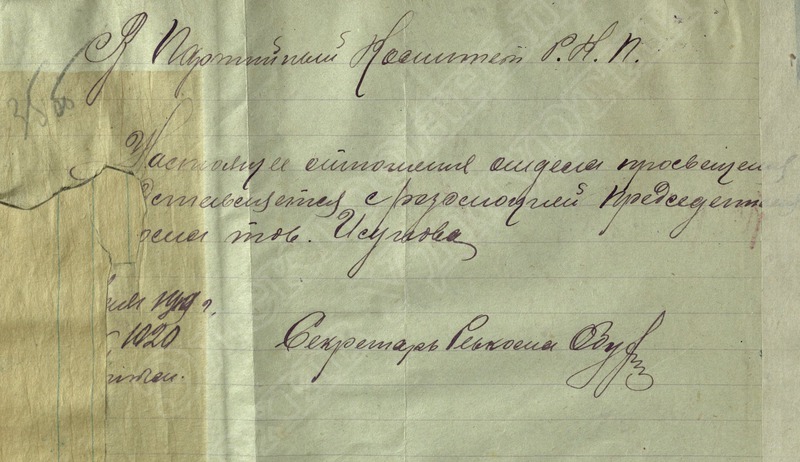 В Партийный Комитет Р.К.П.
Настоящее отношения отдела просвещения
ставляется с резолюцией Председате
кома тов. Исупова
1919 г.
1020
Секретарь Ревкома